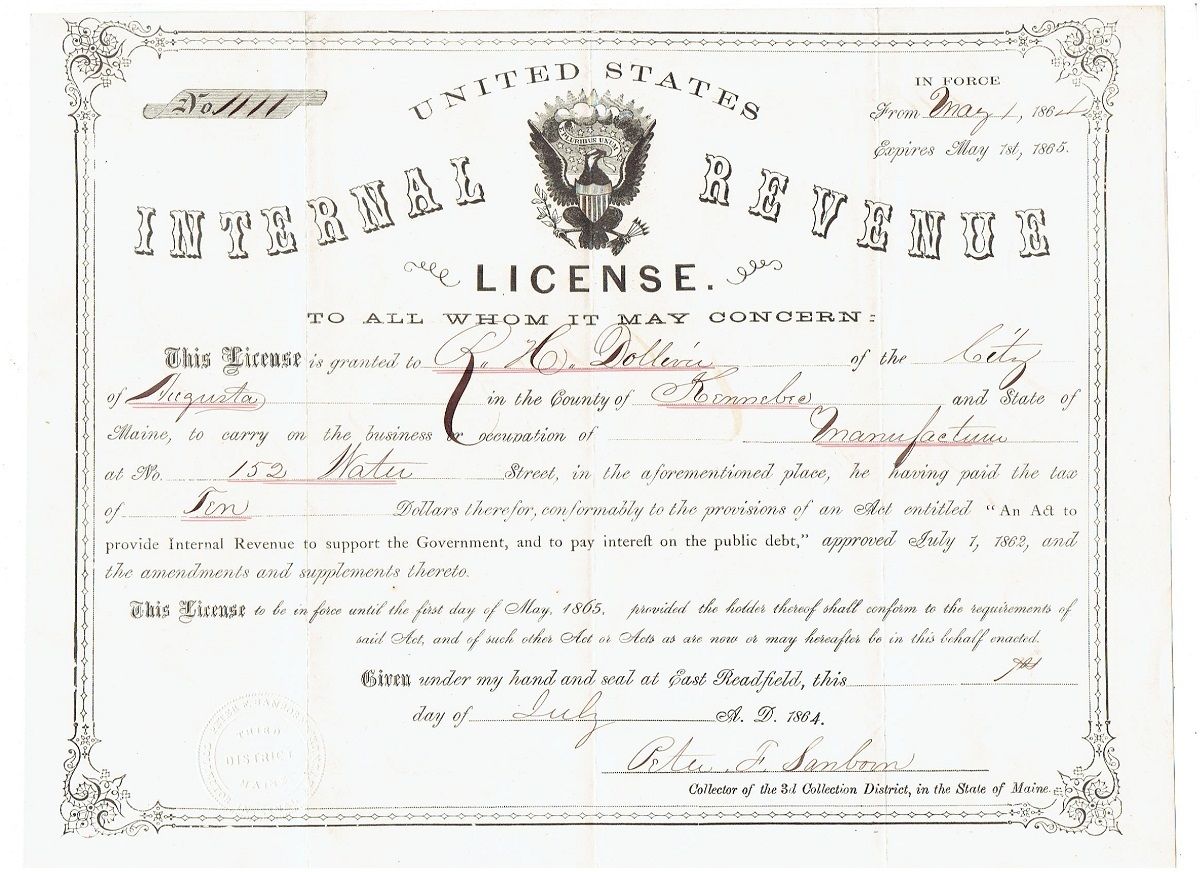 No. 1111
IN FORCE
From May 1, 1864
Expires May 1st, 1865.
UNITED STATES
E PLURIBUS UNUM
INTERNAL REVENUE
LICENSE.
TO ALL WHOM IT MAY CONCERN:
This License is granted to R. H. of the City
of Augusta in the County of Kennebec and State of
Maine, to carry on the business or occupation of Manufacturer
at No. 152 Water Street, in the aforementioned place, he having paid the tax
of Ten Dollars therefor, conformably to the provisions of an Act entitled "An Act to
provide Internal Revenue to support the Government, and to pay interest on the public debt," approved July 1, 1862, and
the amendments and supplements thereto.
This License to be in force until the first day of May, 1865, provided the holder thereof shall conform to the requirements of
said Act, and of such other Act or Acts as are now or may hereafter be in this behalf enacted.
Given under my hand and seal at East Readfield, this
day of July A. D. 1864.
Peter F Sanborn
Collector of the 3d Collection District, in the State of Maine.
THIRD
DISTRICT
MAINE